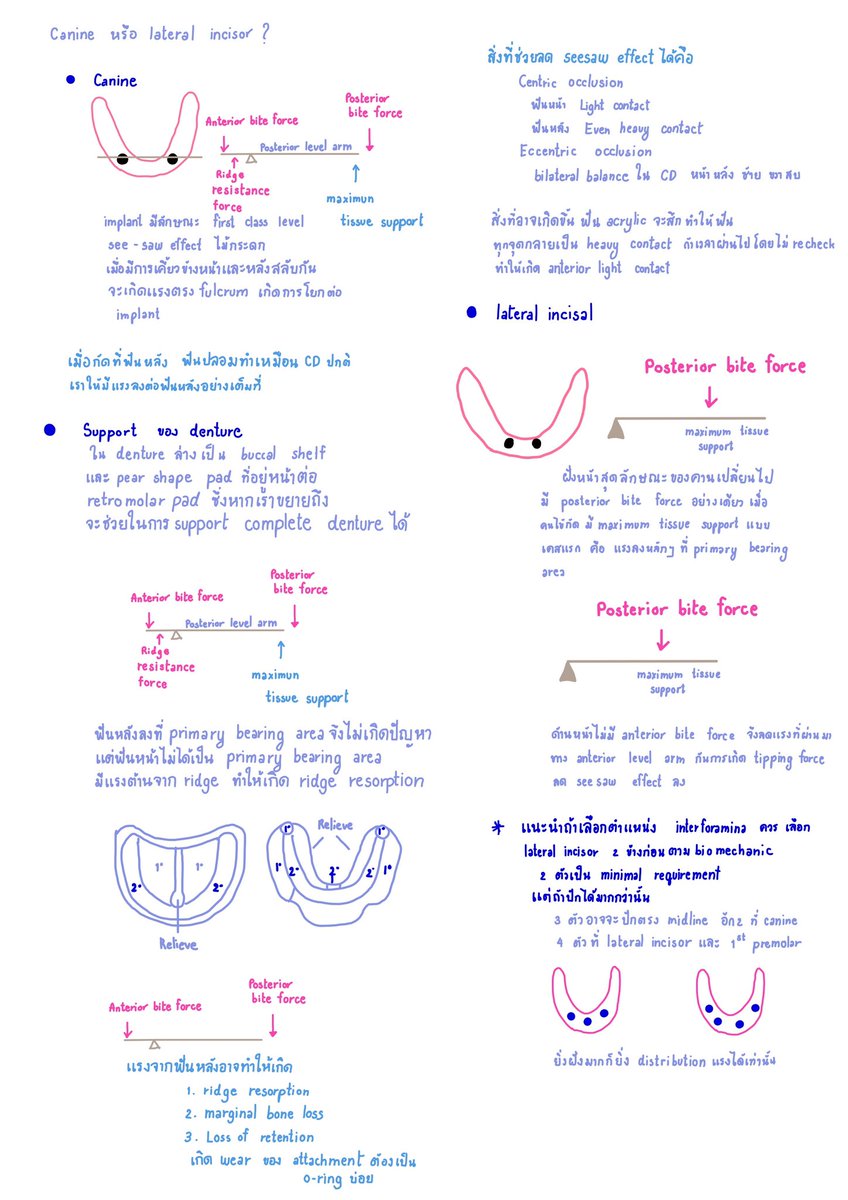 Canine หรือ lateral incisor ?
• Canine
Anterior bite force
Posterior
bite force
Posterior level arm
Ridge
resistance
force
maximun
tissue support
implant มีลักษณะ first class level
see - saw effect ไม้กระดก
เมื่อมีการเคี้ยวข้างหน้าและหลังสลับกัน
จะเกิดแรงตรง fulcrum เกิดการโยกต่อ
implant
เมื่อกัดที่ฟันหลัง ฟันปลอมทำเหมือน CD ปกติ
เราให้มีแรงลงต่อฟันหลังอย่างเต็มที่
• Support ของ denture
ใน denture ล่างเป็น buccal shelf
และ pear shape pad ที่อยู่หน้าต่อ
retromolar pad ซึ่งหากเราขยายถึง
จะช่วยในการ support complete denture ได้
Anterior bite force
Posterior
bite force
Posterior level arm
Ridge
resistance
force
maximun
tissue support
ฟันหลังลงที่ primary bearing area จึงไม่เกิดปัญหา
แต่ฟันหน้าไม่ได้เป็น primary bearing area
มีแรงต้านจาก ridge ทำให้เกิด ridge resorption
2° 1° 1° 2°
Relieve
1° Relieve 1°
1° 2° 2° 2° 1°
Anterior bite force
Posterior
bite force
แรงจากฟันหลังอาจทำให้เกิด
1. ridge resorption
2. marginal bone loss
3. Loss of retention
เกิด wear ของ attachment ต้องเป็น
o-ring บ่อย
สิ่งที่ช่วยลด seesaw effect ได้คือ
Centric occlusion
ฟันหน้า Light contact
ฟันหลัง Even heavy contact
Eccentric occlusion
bilateral balance ใน CD หน้า หลัง ซ้าย ขวา สบ
สิ่งที่อาจเกิดขึ้น ฟัน acrylic จะสึก ทำให้ฟัน
ทุกจุดกลายเป็น heavy contact ถ้าเวลาผ่านไปโดยไม่ recheck
ทำให้เกิด anterior light contact
• lateral incisal
Posterior bite force
maximum tissue
support
ฝั่งหน้าสุดลักษณะของคานเปลี่ยนไป
มี posterior bite force อย่างเดียว เมื่อ
คนไข้กัด มี maximum tissue support แบบ
เคสแรก คือ แรงลงหลักๆ ที่ primary bearing
area
Posterior bite force
maximum tissue
support
ด้านหน้าไม่มี anterior bite force จึงลดแรงที่ผ่านมา
ทาง anterior level arm กันการเกิด tipping force
ลด see saw effect ลง
* แนะนำถ้าเลือกตำแหน่ง interforamina ควร เลือก
lateral incisor 2 ข้างก่อนตาม biomechanic
2 ตัวเป็น minimal requirement
แต่ถ้าปักได้มากกว่านั้น
3 ตัวอาจจะปักตรง midline อีก2 ที่ canine
4 ตัวที่ lateral incisor และ 1st premolar
ยิ่งฝังมากก็ยิ่ง distribution แรงได้เท่านั้น